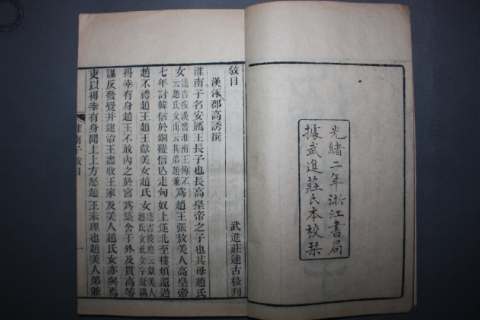 光緒二年浙江書局
據武進莊氏本校栞
敘目
漢涿郡高誘撰
武進莊逵吉校刊
淮南子名安厲王長子也長高皇帝之子也其母趙氏
女 爲趙王張敖美人高皇帝
七年討韓信於銅鞮信亡走匈奴上遂北至樓煩還過
趙不禮趙王趙王獻美女趙氏女
得幸有身趙王不敢內之於宮爲築舍于外及貫高等
謀反發覺并逮治王盡收王家及美人趙氏女亦與焉
吏以得幸有身聞上上方怒趙王未理也趙美人弟兼
淮南子敘目
一